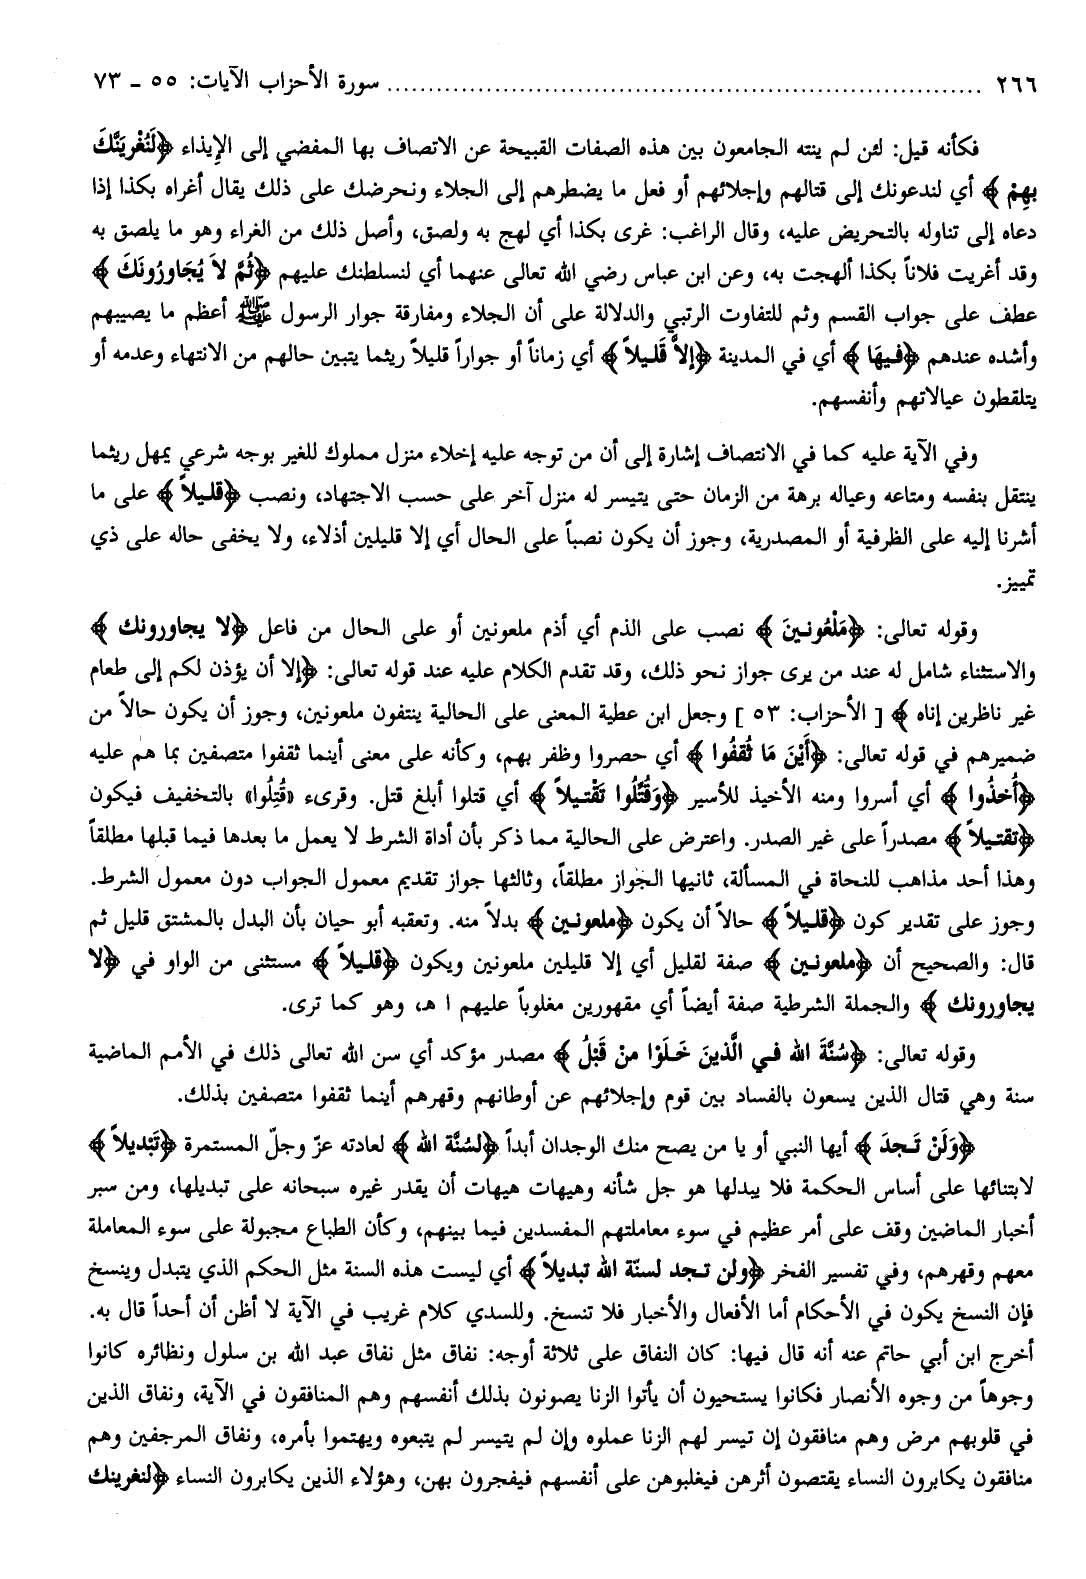 ٢٦٦ ........................................................................ سورة الأحزاب الآيات: ٥٥ ـ ٧٣
فكأنه قيل: لئن لم ينته الجامعون بين هذه الصفات القبيحة عن الاتصاف بها المفضي إلى الإيذاء ﴿لَنُغْرِيَنَّكَ
بِهِمْ﴾ أي لندعونك إلى قتالهم وإجلائهم أو فعل ما يضطرهم إلى الجلاء ونحرضك على ذلك يقال أغراه بكذا إذا
دعاه إلى تناوله بالتحريض عليه، وقال الراغب: غرى بكذا أي لهج به ولصق، وأصل ذلك من الغراء وهو ما يلصق به
وقد أغريت فلاناً بكذا ألهجت به، وعن ابن عباس رضي الله تعالى عنهما أي لنسلطنك عليهم ﴿ثُمَّ لاَ يُجَاوِرُونَكَ﴾
عطف على جواب القسم وثم للتفاوت الرتبي والدلالة على أن الجلاء ومفارقة جوار الرسول ﷺ أعظم ما يصيبهم
وأشده عندهم ﴿فِيهَا﴾ أي في المدينة ﴿إلاَّ قَلِيلاً﴾ أي زماناً أو جواراً قليلاً ريثما يتبين حالهم من الانتهاء وعدمه أو
يتلقطون عيالاتهم وأنفسهم.
وفي الآية عليه كما في الانتصاف إشارة إلى أن من توجه عليه إخلاء منزل مملوك للغير بوجه شرعي يمهل ريثما
ينتقل بنفسه ومتاعه وعياله برهة من الزمان حتى يتيسر له منزل آخر على حسب الاجتهاد، ونصب ﴿قليلاً﴾ على ما
أشرنا إليه على الظرفية أو المصدرية، وجوز أن يكون نصباً على الحال أي إلا قليلين أذلاء، ولا يخفى حاله على ذي
تمييز.
وقوله تعالى: ﴿مَلْعُونينَ﴾ نصب على الذم أي أذم ملعونين أو على الحال من فاعل ﴿لا يجاورونك﴾
والاستثناء شامل له عند من يرى جواز نحو ذلك، وقد تقدم الكلام عليه عند قوله تعالى: ﴿إلا أن يؤذن لكم إلى طعام
غير ناظرين إناه﴾ [الأحزاب: ٥٣] وجعل ابن عطية المعنى على الحالية ينتفون ملعونين، وجوز أن يكون حالاً من
ضميرهم في قوله تعالى: ﴿أَيْنَ مَا ثُقفُوا﴾ أي حصروا وظفر بهم، وكأنه على معنى أينما ثقفوا متصفين بما هم عليه
﴿أُخذُوا﴾ أي أسروا ومنه الأخيذ للأسير ﴿وَقُتِّلُوا تَقْتيلاً﴾ أي قتلوا أبلغ قتل. وقرىء «قُتِلُوا» بالتخفيف فيكون
﴿تقتيلاً﴾ مصدراً على غير الصدر. واعترض على الحالية مما ذكر بأن أداة الشرط لا يعمل ما بعدها فيما قبلها مطلقاً
وهذا أحد مذاهب للنحاة في المسألة، ثانيها الجواز مطلقاً، وثالثها جواز تقديم معمول الجواب دون معمول الشرط.
وجوز على تقدير كون ﴿قليلاً﴾ حالاً أن يكون ﴿ملعونين﴾ بدلاً منه. وتعقبه أبو حيان بأن البدل بالمشتق قليل ثم
قال: والصحيح أن ﴿ملعونين﴾ صفة لقليل أي إلا قليلين ملعونين ويكون ﴿قليلاً﴾ مستثنى من الواو في ﴿لا
يجاورونك﴾ والجملة الشرطية صفة أيضاً أي مقهورين مغلوباً عليهم ا هـ، وهو كما ترى.
وقوله تعالى: ﴿سُنَّةَ الله في الَّذينَ خَلَوْا منْ قَبْلُ﴾ مصدر مؤكد أي سن الله تعالى ذلك في الأمم الماضية
سنة وهي قتال الذين يسعون بالفساد بين قوم وإجلائهم عن أوطانهم وقهرهم أينما ثقفوا متصفين بذلك.
﴿وَلَنْ تَجدَ﴾ أيها النبي أو يا من يصح منك الوجدان أبداً ﴿لسُنَّة الله﴾ لعادته عزّ وجلّ المستمرة ﴿تَبْديلاً﴾
لابتنائها على أساس الحكمة فلا يبدلها هو جل شأنه وهيهات هيهات أن يقدر غيره سبحانه على تبديلها، ومن سبر
أخبار الماضين وقف على أمر عظيم في سوء معاملتهم المفسدين فيما بينهم، وكأن الطباع مجبولة على سوء المعاملة
معهم وقهرهم، وفي تفسير الفخر ﴿ولن تجد لسنّة الله تبديلاً﴾ أي ليست هذه السنة مثل الحكم الذي يتبدل وينسخ
فإن النسخ يكون في الأحكام أما الأفعال والأخبار فلا تنسخ. وللسدي كلام غريب في الآية لا أظن أن أحداً قال به.
أخرج ابن أبي حاتم عنه أنه قال فيها: كان النفاق على ثلاثة أوجه: نفاق مثل نفاق عبد الله بن سلول ونظائره كانوا
وجوهاً من وجوه الأنصار فكانوا يستحيون أن يأتوا الزنا يصونون بذلك أنفسهم وهم المنافقون في الآية، ونفاق الذين
في قلوبهم مرض وهم منافقون إن تيسر لهم الزنا عملوه وإن لم يتيسر لم يتبعوه ويهتموا بأمره، ونفاق المرجفين وهم
منافقون يكابرون النساء يقتصون أثرهن فيغلبوهن على أنفسهم فيفجرون بهن، وهؤلاء الذين يكابرون النساء ﴿لنغرينك